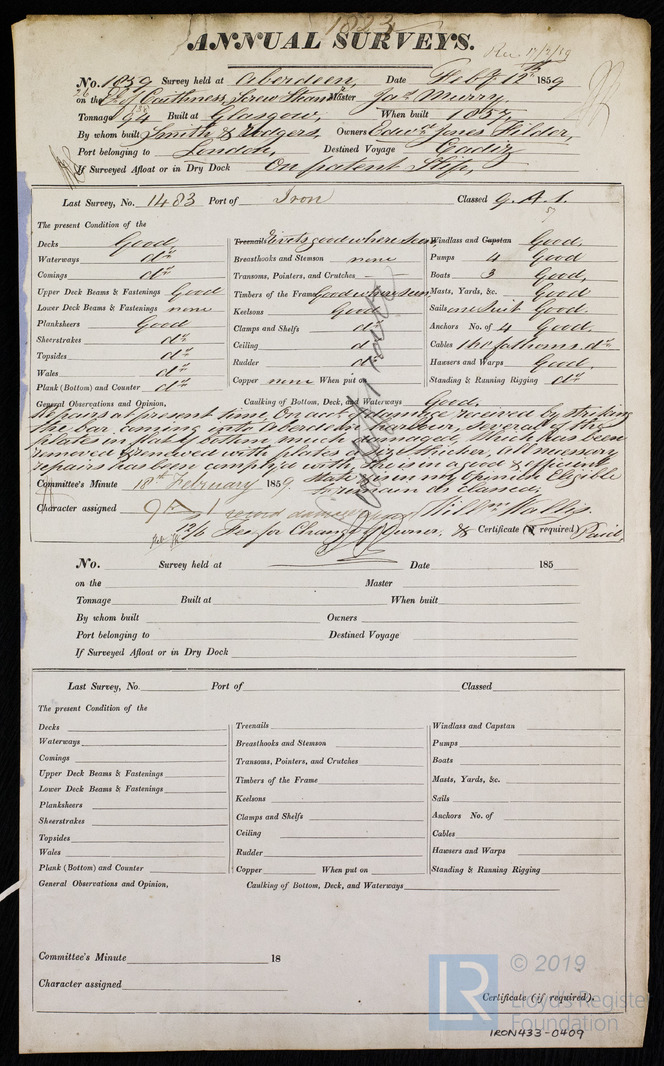 1823
ANNUAL SURVEYS.
Rec. 12/2/59
No. 1859 Survey held at Aberdeen, Date Feby 10th 1859
on the E of Caithness, Screw Steamer Master Jas. Murry
Tonnage 94 Built at Glasgow, When built 1857,
By whom built Smith & Rodgers Owners Edwd. Jones Filder,
Port belonging to London, Destined Voyage Cadiz
If Surveyed Afloat or in Dry Dock On patent Slip,
Last Survey, No. 1483 Port of Iron Classed 9. A. 1.
The present Condition of the
Decks Good,
Waterways do.
Comings do.
Upper Deck Beams & Fastenings Good
Lower Deck Beams & Fastenings none
Planksheers Good
Sheerstrakes do.
Topsides do.
Wales do.
Plank (Bottom) and Counter do.
Treenails Rivets good where seen,
Breasthooks and Stemson none
Transoms, Pointers, and Crutches
Timbers of the Frame Good where seen,
Keelsons Good
Clamps and Shelfs do.
Ceiling do.
Rudder do.
Copper none When put on
Windlass and Capstan Good,
Pumps 4 Good
Boats 3 Good,
Masts, Yards, &c. Good
Sails one Suit Good.
Anchors No. of 4 Good.
Cables 160 fathoms do.
Hawsers and Warps Good,
Standing & Running Rigging do.
General Observations and Opinion, Caulking of Bottom, Deck, and Waterways Good,
Repairs at present time, On acct. of damage received by Striking
the bar, coming into Aberdeen harbour, Several of the
plates in flat of bottom much damaged, Which has been
removed & renewed with plates of thicker, All necessary
repairs has been complyed with, She is in a good & efficient
State & is in my Opinion Eligible
to remain as Classed,
Committee's Minute 18th February 1859.
Character assigned 9 A 1 record damage repairs Willm. Wallis.
12/6 Fee for Change of Owner, & Certificate (if required) Paid
No. Survey held at Date 185
on the Master
Tonnage Built at When built
By whom built Owners
Port belonging to Destined Voyage
If Surveyed Afloat or in Dry Dock
Last Survey, No. Port of Classed
The present Condition of the
Decks
Waterways
Comings
Upper Deck Beams & Fastenings
Lower Deck Beams & Fastenings
Planksheers
Sheerstrakes
Topsides
Wales
Plank (Bottom) and Counter
Treenails
Breasthooks and Stemson
Transoms, Pointers, and Crutches
Timbers of the Frame
Keelsons
Clamps and Shelfs
Ceiling
Rudder
Copper When put on
Windlass and Capstan
Pumps
Boats
Masts, Yards, &c.
Sails
Anchors No. of
Cables
Hawsers and Warps
Standing & Running Rigging
General Observations and Opinion, Caulking of Bottom, Deck, and Waterways
Committee's Minute 18
Character assigned
Certificate (if required).
LR © 2019
Lloyd's Register
Foundation
IRON433-0409